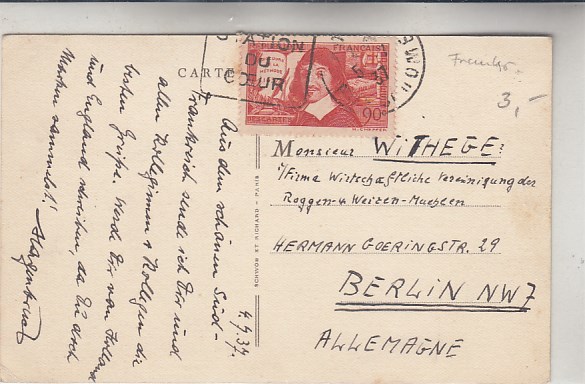 STATION
DU
CŒUR
FRANÇAISE
DISCOURS
DE LA
MÉTHODE
DESCARTES
90c
CARTE
Frankr.
3,-
4.9.37.
Aus dem schönen Süd-
Frankreich sende ich Dir und
allen Kolleginnen & Kollegen die
besten Grüße. Werde Dir von Holland
und England schreiben, da Du doch
Marken sammelst!
SCHWOB ET RICHARD - PARIS
Monsieur WITHEGE!
i/Firma Wirtschaftliche Vereinigung der
Roggen- & Weizen-Muehlen
HERMANN GOERINGSTR. 29
BERLIN NW7
ALLEMAGNE